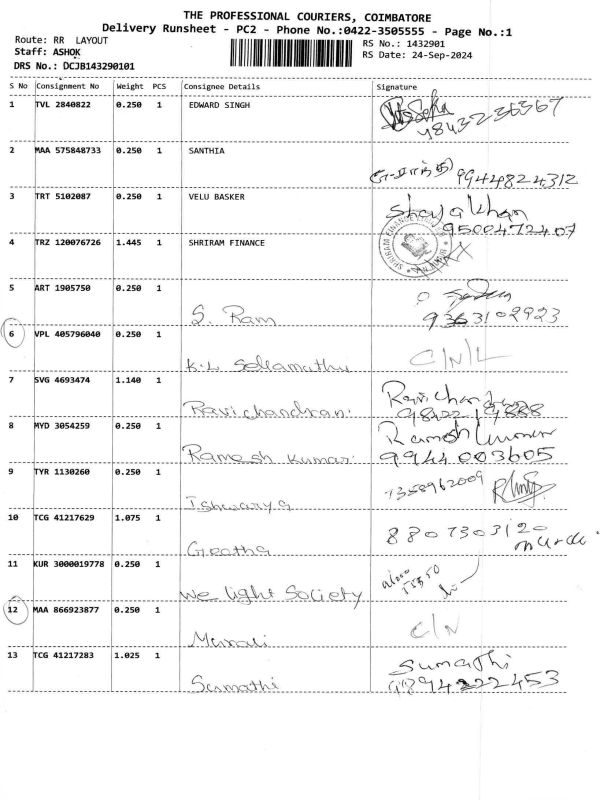 THE PROFESSIONAL COURIERS, COIMBATORE
Delivery Runsheet - PC2 - Phone No.:0422-3505555 - Page No.:1
Route: RR LAYOUT
RS No.: 1432901
Staff: ASHOK
RS Date: 24-Sep-2024
DRS No.: DCJB143290101
S No Consignment No Weight PCS Consignee Details Signature
1 TVL 2840822 0.250 1 EDWARD SINGH
2 MAA 575848733 0.250 1 SANTHIA
9944824312
3 TRT 5102087 0.250 1 VELU BASKER
9500472407
4 TRZ 120076726 1.445 1 SHRIRAM FINANCE
SHRIRAM FINANCE
5 ART 1905750 0.250 1
S. Ram
9363102923
6 VPL 405796040 0.250 1
K.L Sellamuthu
C/N/L
7 SVG 4693474 1.140 1
Ravichandran
8 MYD 3054259 0.250 1
Ramesh Kumar
9944003605
9 TYR 1130260 0.250 1
7358962009
Ishwarya
10 TCG 41217629 1.075 1
8807303120
Geetha
11 KUR 3000019778 0.250 1
We light Society
12 MAA 866923877 0.250 1
C/N
13 TCG 41217283 1.025 1
Sumathi
Sumathi